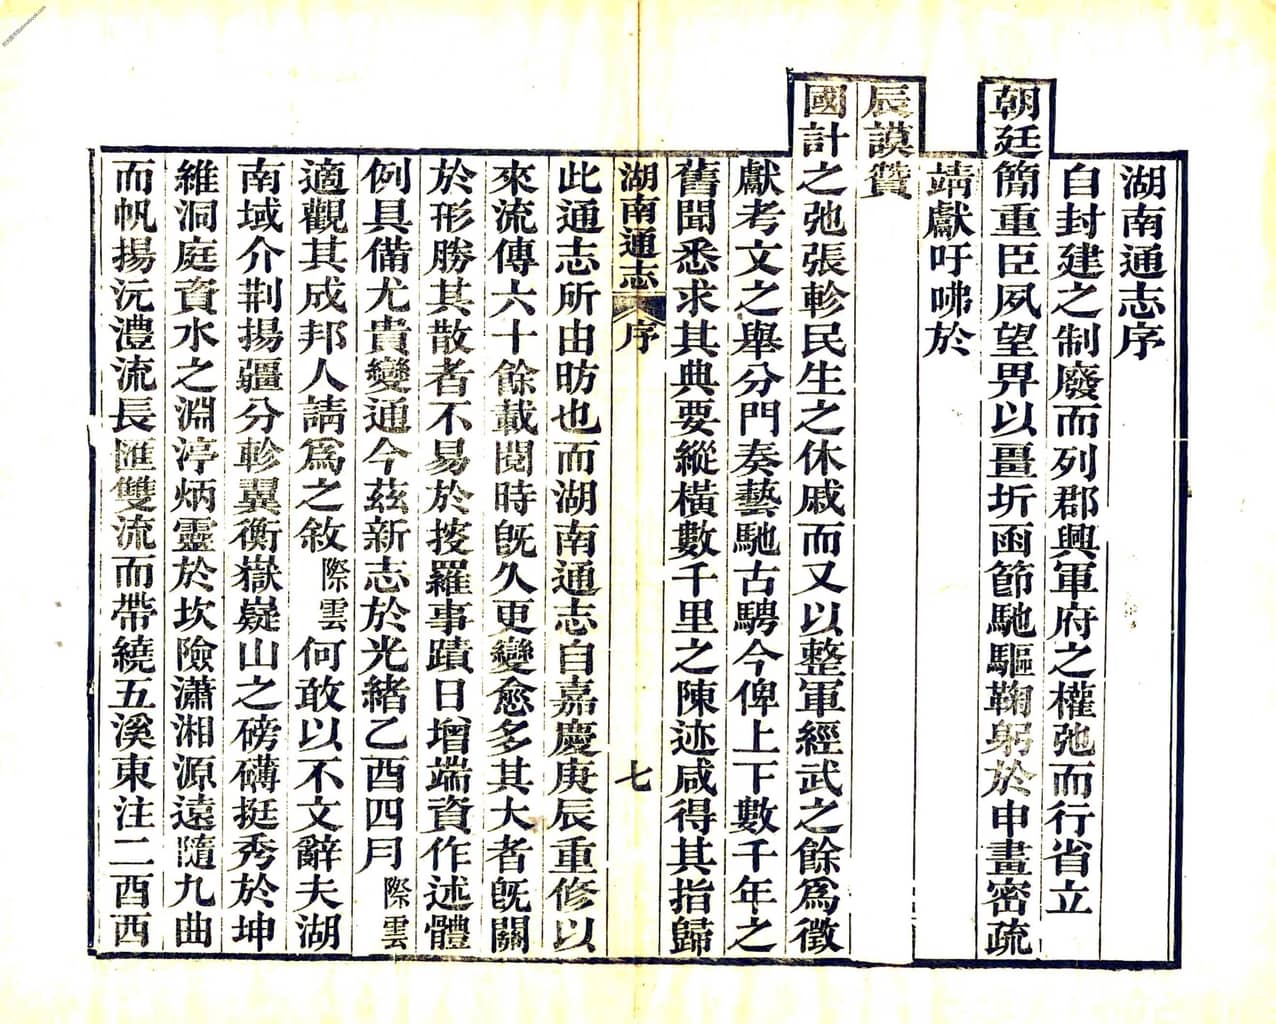 湖南通志序
自封建之制廢而列郡興軍府之權弛而行省立
朝廷簡重臣夙望畀以畺圻函節馳驅鞠躬於申畫密疏
靖獻吁咈於
宸謨贊
國計之弛張軫民生之休戚而又以整軍經武之餘爲徵
獻考文之舉分門奏藝馳古騁今俾上下數千年之
舊聞悉求其典要縱橫數千里之陳迹咸得其指歸
湖南通志 序 七
此通志所由昉也而湖南通志自嘉慶庚辰重修以
來流傳六十餘載閱時旣久更變愈多其大者旣關
於形勝其散者不易於搜羅事蹟日增端資作述體
例具備尤貴變通今茲新志於光緒乙酉四月際雲
適觀其成邦人請爲之敘際雲何敢以不文辭夫湖
南域介荆揚疆分軫翼衡嶽嶷山之磅礴挺秀於坤
維洞庭資水之淵渟炳靈於坎險瀟湘源遠隨九曲
而帆揚沅澧流長匯雙流而帶繞五溪東注二酉西